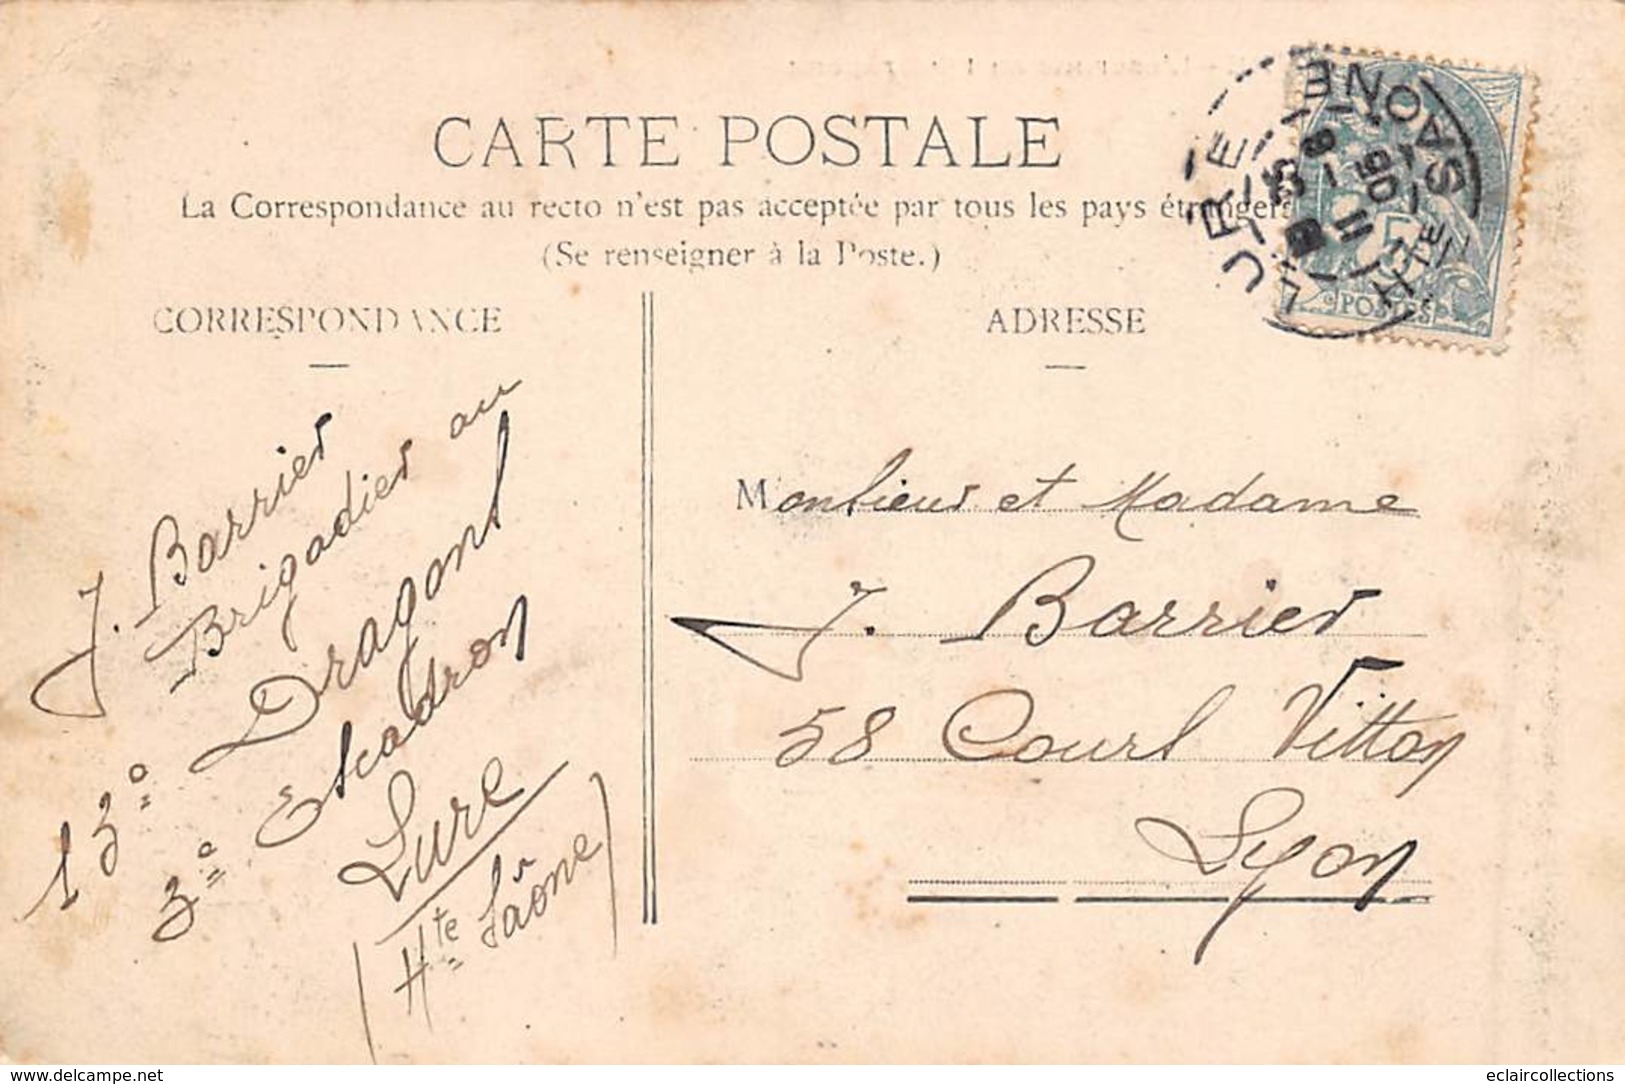 CARTE POSTALE
La Correspondance au recto n'est pas acceptée par tous les pays étrangers
(Se renseigner à la Poste.)
CORRESPONDANCE
ADRESSE
LURE
HTE SAONE
11
05
POSTES
J. Barrier
Brigadier au
13e Dragons
3e Escadron
Lure
(Hte Saône)
Monsieur et Madame
J. Barrier
58 Cours Vitton
Lyon
www.delcampe.net
eclaircollections